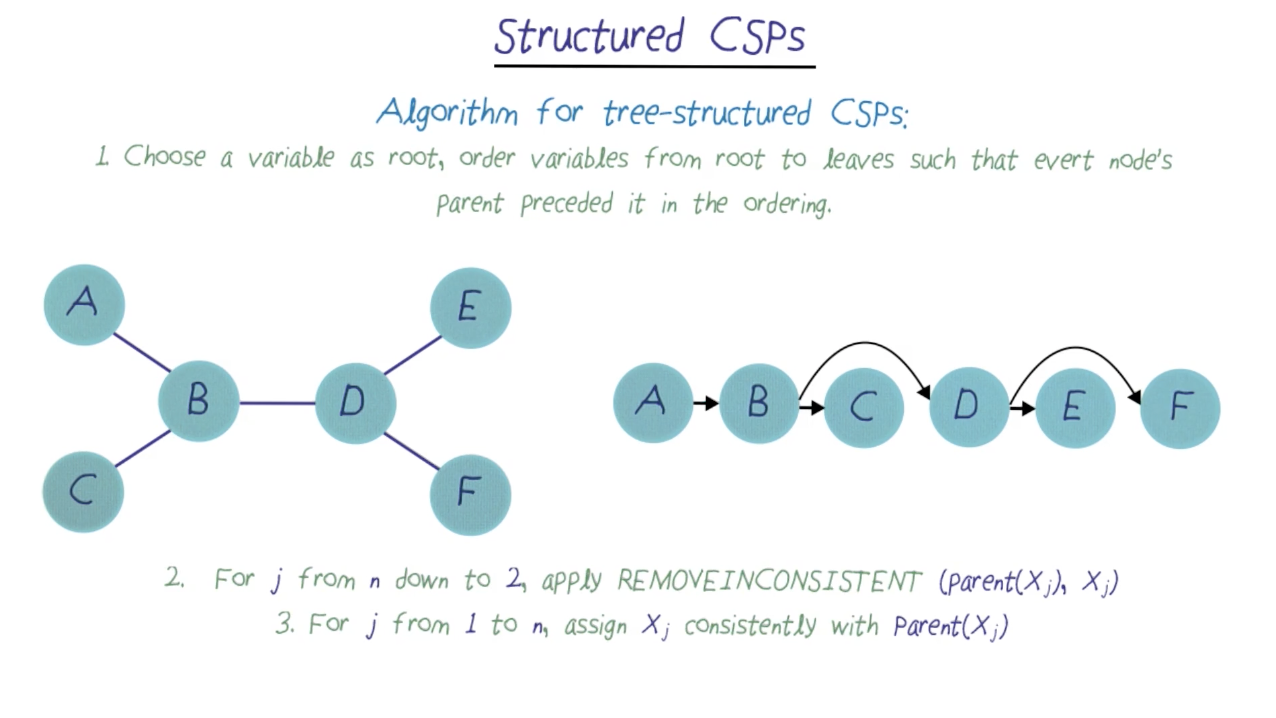 Structured CSPs
Algorithm for tree-structured CSPs:
1. Choose a variable as root, order variables from root to leaves such that evert node's
parent preceded it in the ordering.
A
E
B
D
C
F
A
B
C
D
E
F
2. For j from n down to 2, apply REMOVEINCONSISTENT (Parent(Xj), Xj)
3. For j from 1 to n, assign Xj consistently with Parent(Xj)